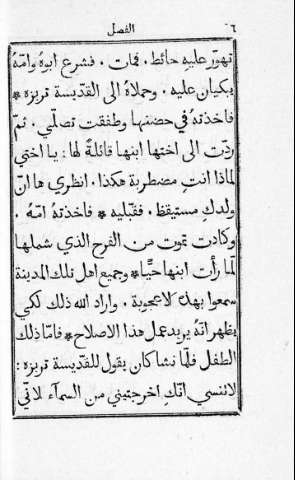 ٦ الفصل
تهوّر عليه حائط. فمات. فشرع ابوهُ وامّهُ
يبكيان عليه. وحملاهُ الى القدّيسة تريزه *
فاخذتهُ في حضنها وطفقت تصلّي. ثمّ
ردّت الى اختها ابنها قائلةً لها: يا اختي
لماذا انتِ مضطربة هكذا. انظري ها انّ
ولدكِ مستيقظ. فقبّليه * فاخذتهُ امّهُ.
وكادت تموت من الفرح الذي شملها
لمّا رأت ابنها حيًّا * وجميع اهل تلك المدينة
سمعوا بهذه الاعجوبة. واراد الله ذلك لكي
يظهر انّهُ يريد عمل هذا الاصلاح * فامّا ذلك
الطفل فلمّا نشا كان يقول للقدّيسة تريزه:
لا تنسي انّكِ اخرجتيني من السمآء لانّي